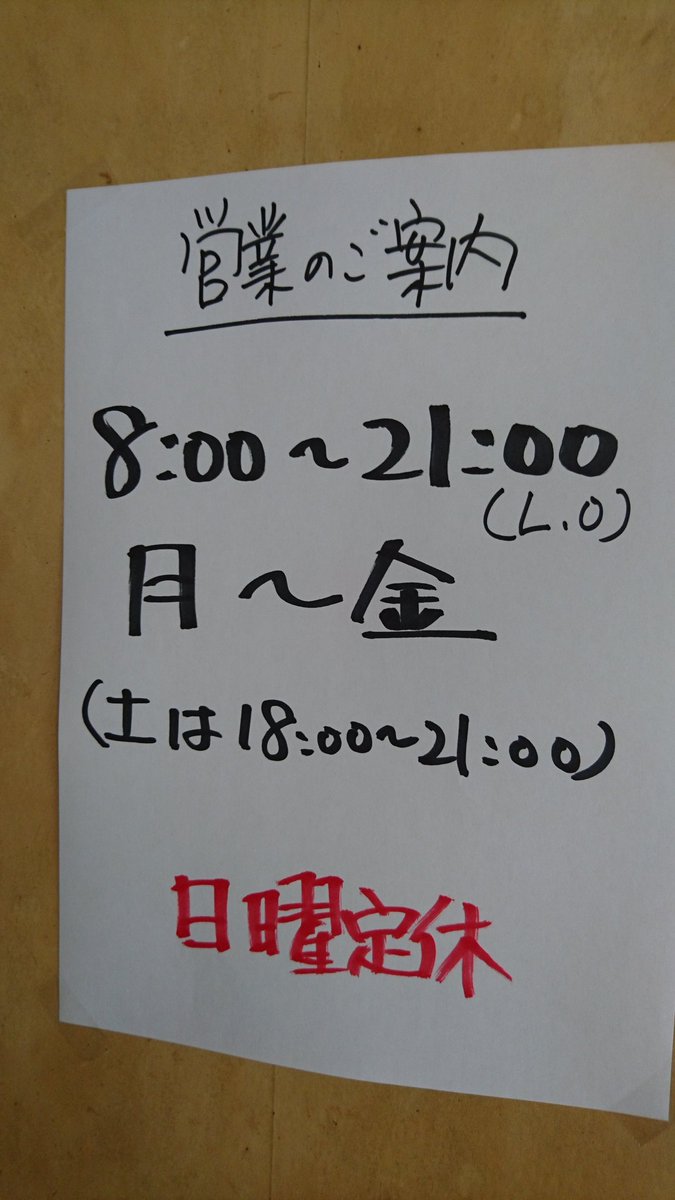 営業のご案内
8:00〜21:00
(L.O)
月〜金
(土は18:00〜21:00)
日曜定休